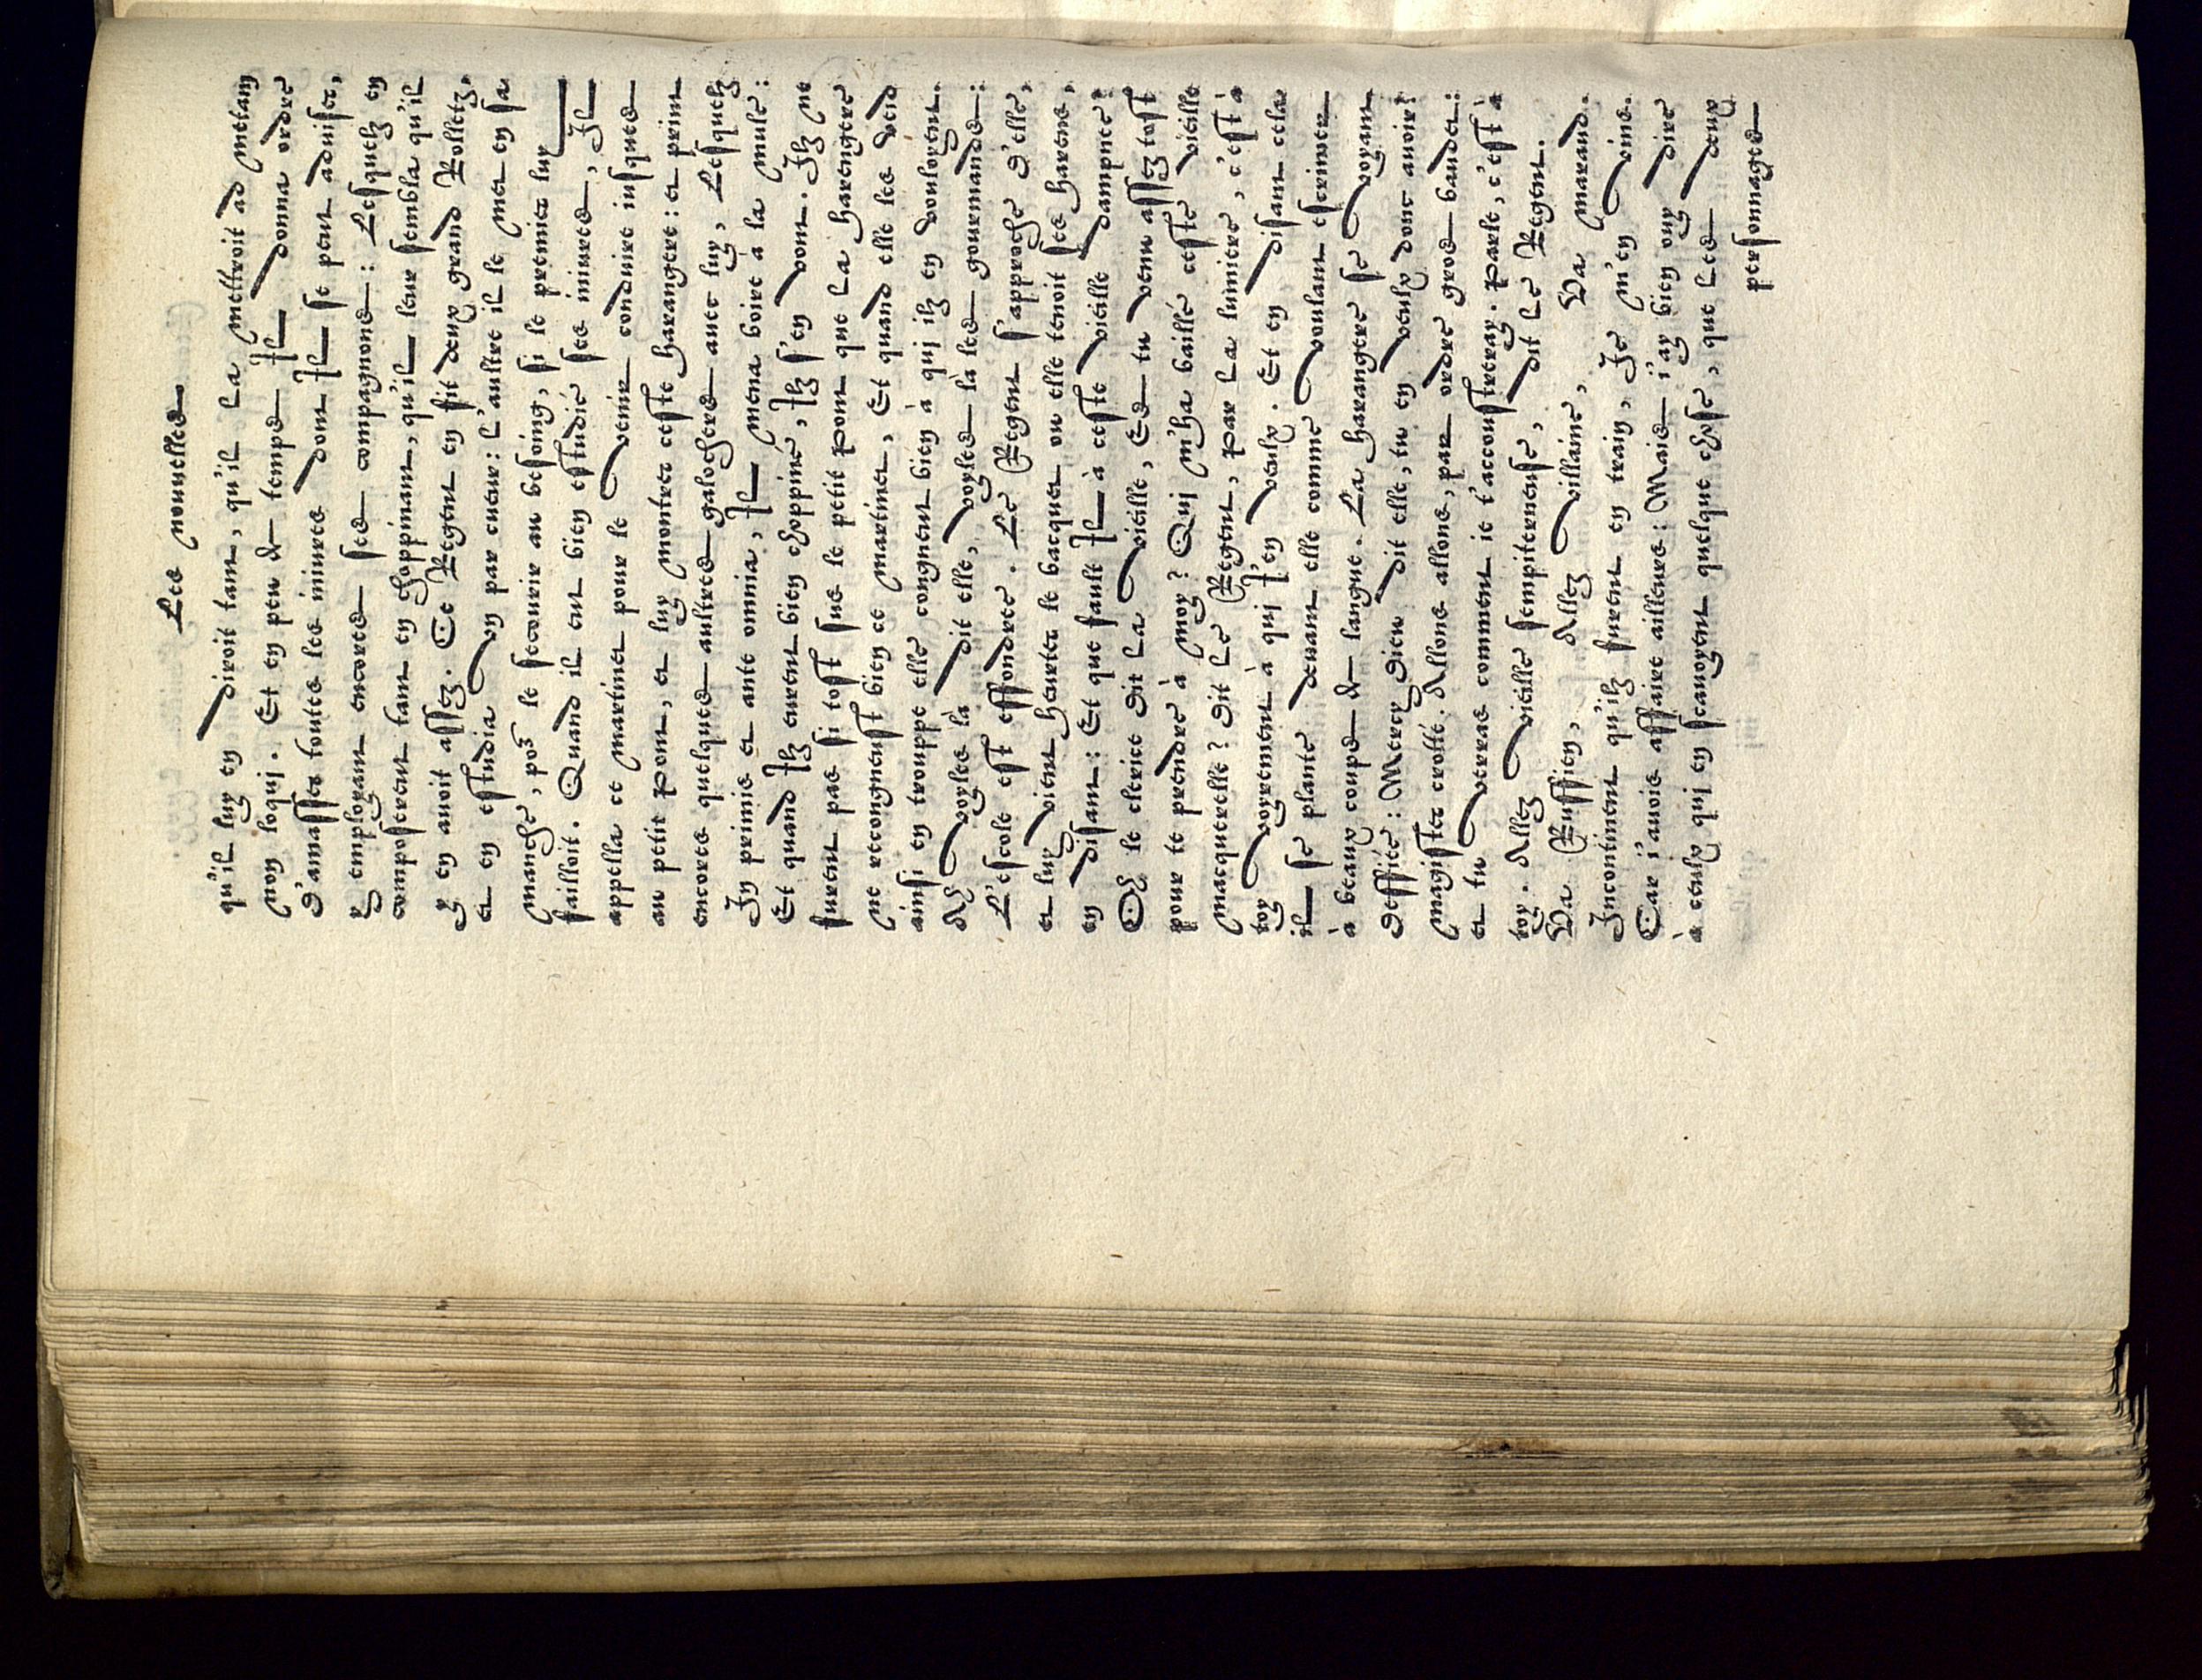 Les nouuelles
qu'il luy en diroit tant, qu'il la mettroit ad metam
non loqui. Et en peu de temps Il donna ordre
d'amasser toutes les iniures dont Il se peut aduiser,
y employant encores ses compagnons: Lesquelz en
composerent tant en choppinant, qu'il leur sembla qu'il
y en auoit assez. Ce Regent en fit deux grand Rolletz,
et en estudia vn par cueur: l'aultre il le met en sa
manche, po⁹ le secourir au besoing, si le premier luy
failloit. Quand il eut bien estudié ses iniures, Il
appella ce martinet pour le venir conduire iusques
au petit Pont, et luy monstrer ceste harangere: et print
encores quelques aultres galochers auec luy, Lesquelz
In primis et ante omnia, Il mena boire à la mule:
Et quand Ilz eurent bien choppiné, Ilz s'en vont. Ilz ne
furent pas si tost sus le petit Pont que la harengere
ne recongneust bien ce martinet, Et quand elle les veid
ainsi en trouppe elle congneut bien à qui ilz en vouloyent.
Ah voylez là dit elle, voylez là les gourmands:
L'escole est effondree. Le Regent s'approche d'elle,
et luy vient heurter le bacquet ou elle tenoit ses harens,
en disant: Et que fault Il à ceste vieille dampnee?
Oh le clerice dit la vieille, Es tu venu assez tost
pour te prendre à moy? Qui m'ha baillé ceste vieille
macquerelle? dit le Regent, Par la lumiere, c'est à
toy voyrement à qui I'en veulx. Et en disant cela
il se plante deuant elle comme voulant escrimer
à beaux coups de langue. La harangere se voyant
deffiee: Mercy dieu dit elle, tu en veulx donc auoir?
magister crotté. Allons allons, par ordre gros baudet:
et tu verras comment ie t'accoustreray. Parle, c'est à
toy. Allez vieille sempiterneuse, dit le Regent.
Va Ruffien, Allez villaine, Va maraud.
Incontinent qu'ilz furent en train, Ie m'en vins.
Car i'auois affaire ailleurs: Mais i'ay bien ouy dire
à ceulx qui en scauoyent quelque chose, que les deux
personnages